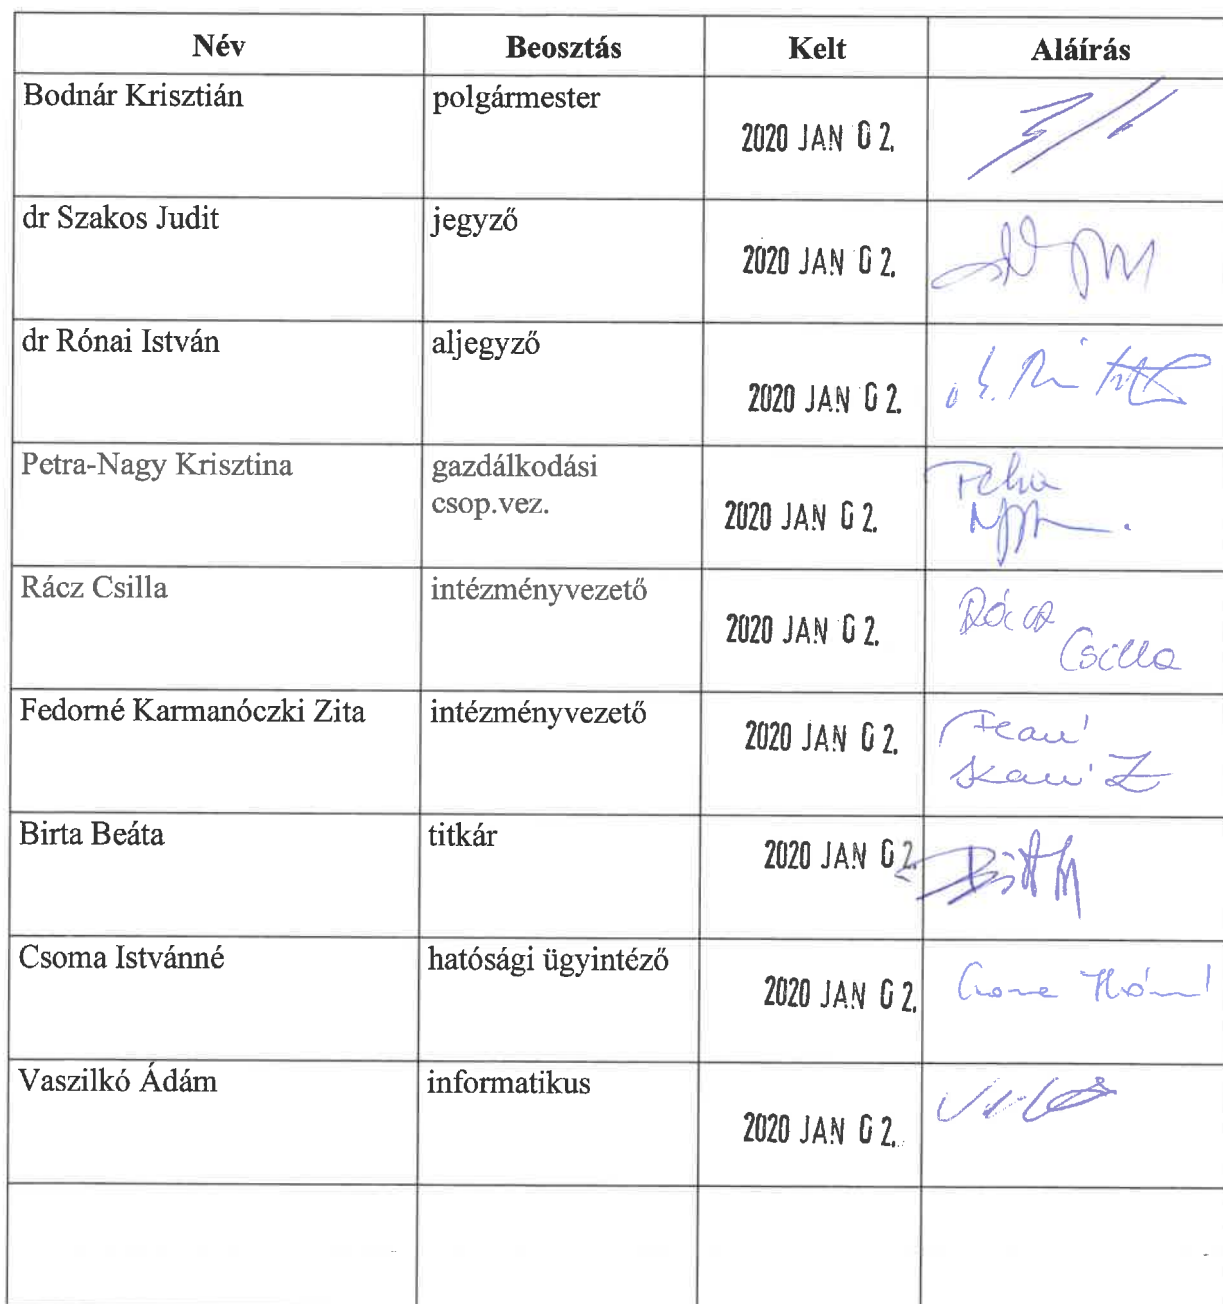 Név Beosztás Kelt Aláírás
Bodnár Krisztián polgármester 2020 JAN 02.
dr Szakos Judit jegyző 2020 JAN 02.
dr Rónai István aljegyző 2020 JAN 02.
Petra-Nagy Krisztina gazdálkodási
csop.vez. 2020 JAN 02.
Rácz Csilla intézményvezető 2020 JAN 02. Rácz
Csilla
Fedorné Karmanóczki Zita intézményvezető 2020 JAN 02.
Birta Beáta titkár 2020 JAN 02.
Csoma Istvánné hatósági ügyintéző 2020 JAN 02.
Vaszilkó Ádám informatikus 2020 JAN 02.